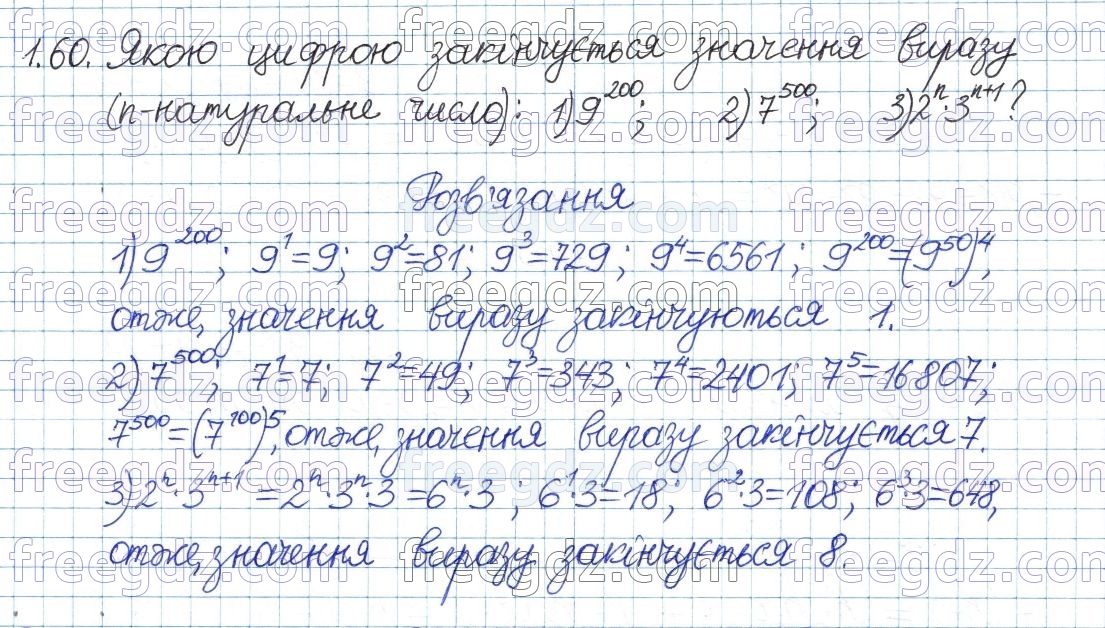 1.60. Якою цифрою закінчується значення виразу
(n-натуральне число): 1) 9^200; 2) 7^500; 3) 2^n·3^(n+1)?
Розв'язання
1) 9^200; 9^1=9; 9^2=81; 9^3=729; 9^4=6561; 9^200=(9^50)^4,
отже, значення виразу закінчуються 1.
2) 7^500; 7^1=7; 7^2=49; 7^3=343; 7^4=2401; 7^5=16807;
7^500=(7^100)^5, отже, значення виразу закінчується 7.
3) 2^n·3^(n+1) = 2^n·3^n·3 = 6^n·3; 6^1·3=18; 6^2·3=108; 6^3·3=648,
отже, значення виразу закінчується 8.